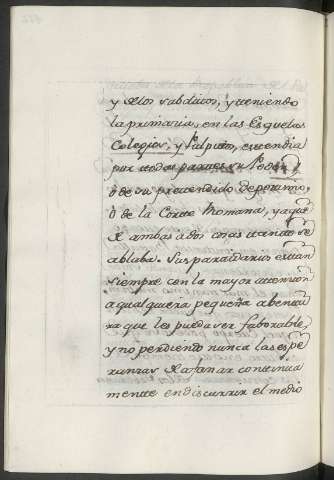 y de los subditos, y teniendo
la primaria, en las Esquelas
Colegios, y Pulpitos, estendia
por todas partes su
ò de su pretendido
ò de la Corte Romana, ya que
de ambas à dos cosas tanto se
ablaba. Sus partidarios estan
siempre con la mayor atencion
a qualquiera pequeña abentu
ra que les pueda ser faborable,
y no perdiendo nunca las espe
ranzas de afanar continua
mente en discurrir el medio